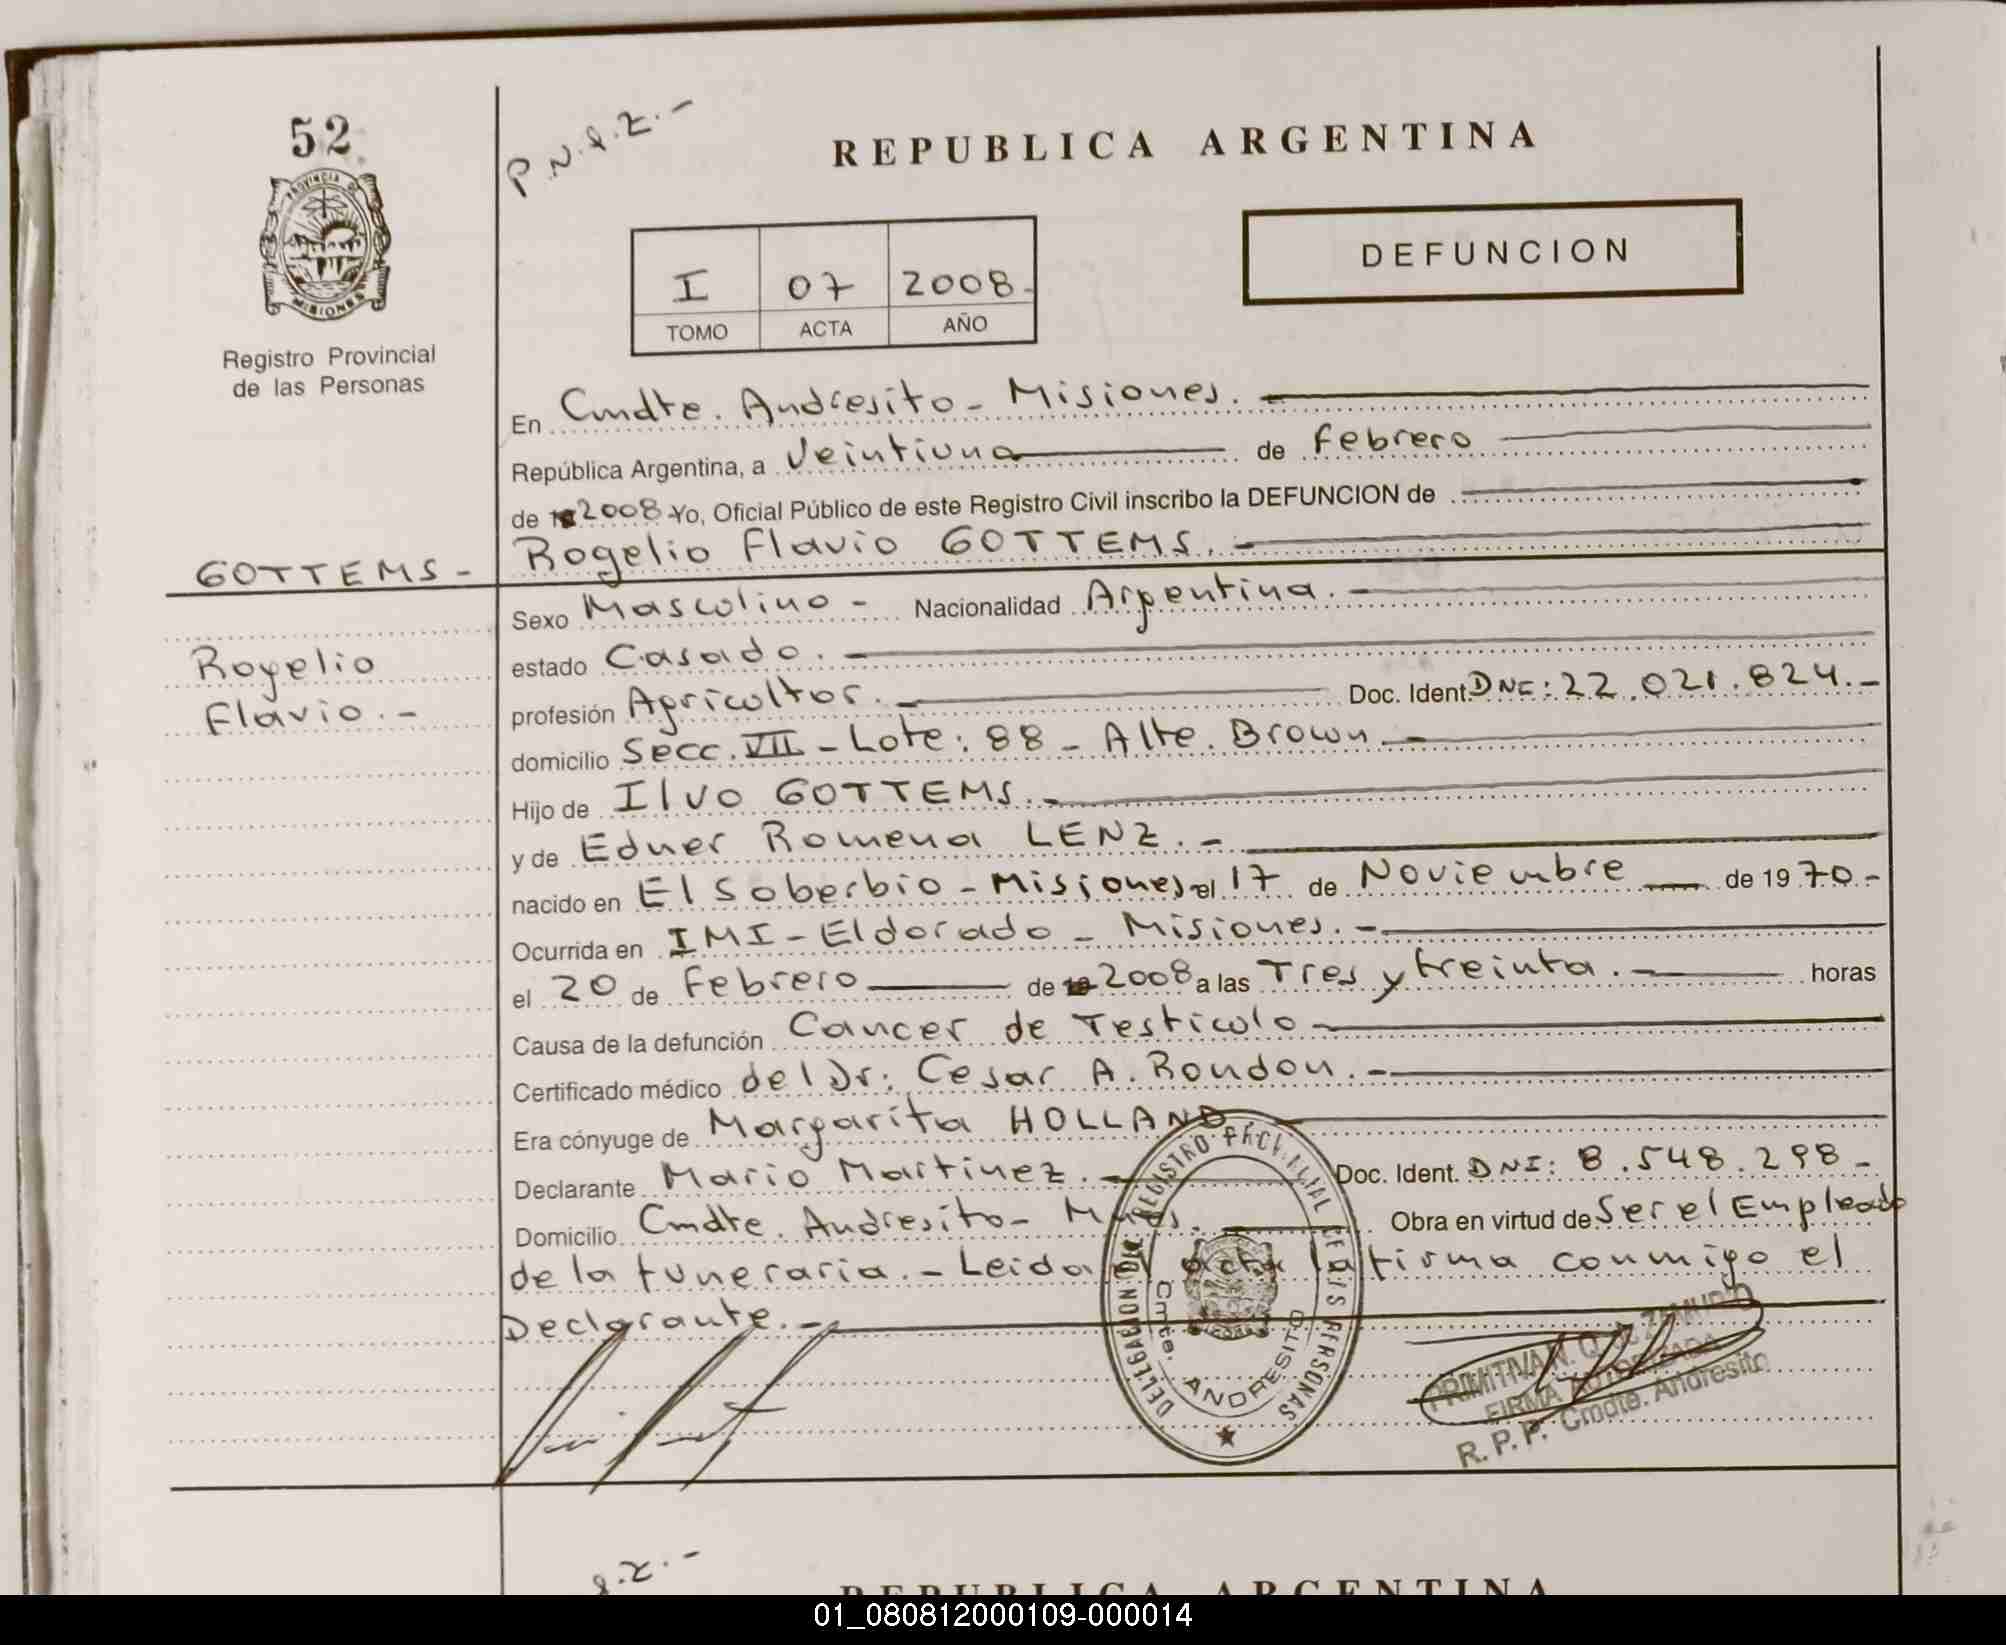 52
P.N.q.Z.-
REPUBLICA ARGENTINA
PROVINCIA DE
MISIONES
Registro Provincial
de las Personas
I 07 2008.
TOMO ACTA AÑO
DEFUNCION
En Cmdte. Andresito - Misiones.
República Argentina, a Veintiuno de Febrero
de 2008 Yo, Oficial Público de este Registro Civil inscribo la DEFUNCION de
GOTTEMS - Rogelio Flavio GOTTEMS.-
Sexo Masculino - Nacionalidad Argentina.-
Rogelio estado Casado.-
Flavio.- profesión Agricultor.- Doc. Ident. DNI: 22.021.824.-
domicilio Secc. VII - Lote: 88 - Alte. Brown -
Hijo de Ilvo GOTTEMS.-
y de Edner Romena LENZ.-
nacido en El Soberbio - Misiones el 17 de Noviembre de 1970.-
Ocurrida en IMI - Eldorado - Misiones.-
el 20 de Febrero de 2008 a las Tres y treinta.- horas
Causa de la defunción Cancer de Testiculo
Certificado médico del Dr: Cesar A. Rondon.-
Era cónyuge de Margarita HOLLAND
Declarante Mario Martinez.- Doc. Ident. DNI: 8.548.298 -
Domicilio Cmdte. Andresito - Mnes. Obra en virtud de Ser el Empleado
de la funeraria.- Leida el acta la firma conmigo el
Declarante.-
DELEGACION DEL REGISTRO PROVINCIAL DE LAS PERSONAS
Cmte. ANDRESITO
FIRMA AUTORIZADA
R. P. P. Cmdte. Andresito
REPUBLICA ARGENTINA
01_080812000109-000014